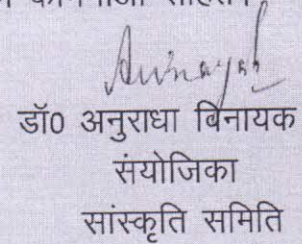 सहित
डॉ0 अनुराधा विनायक
संयोजिका
सांस्कृति समिति